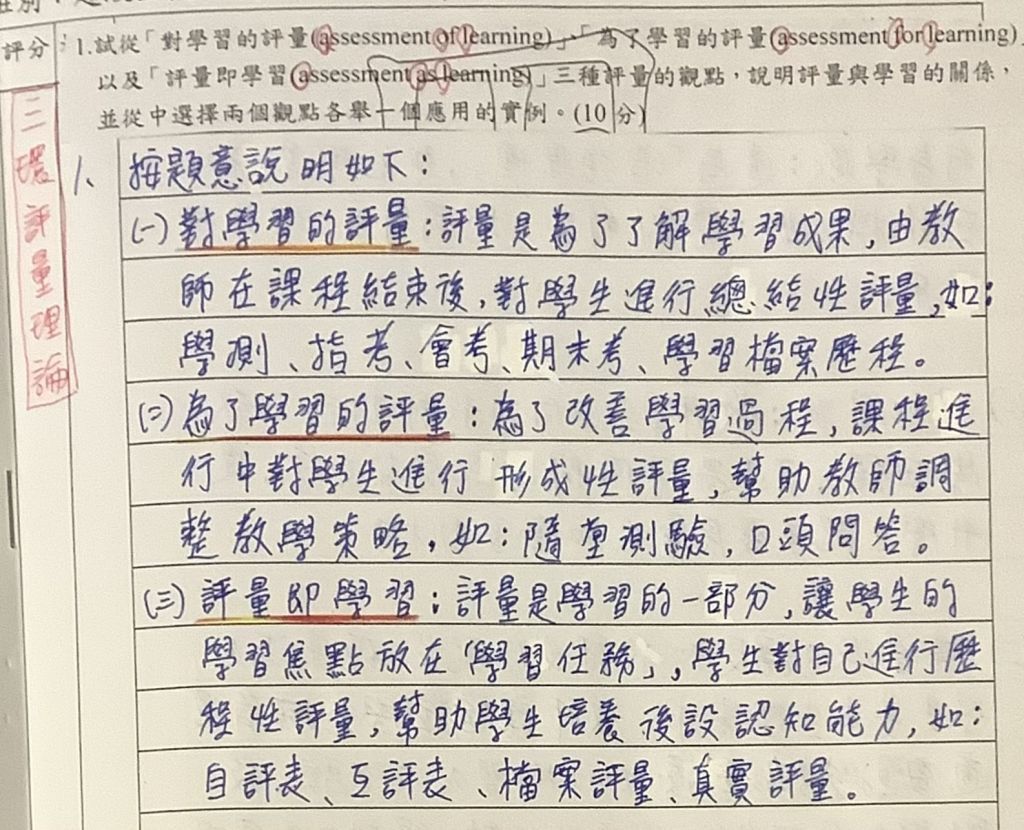 評分
1.試從「對學習的評量(assessment of learning)」、「為了學習的評量(assessment for learning)
以及「評量即學習(assessment as learning)」三種評量的觀點，說明評量與學習的關係，
並從中選擇兩個觀點各舉一個應用的實例。(10 分)
三環評量理論
1、按題意說明如下：
(一)對學習的評量：評量是為了了解學習成果，由教
師在課程結束後，對學生進行總結性評量，如：
學測、指考、會考、期末考、學習檔案歷程。
(二)為了學習的評量：為了改善學習過程，課程進
行中對學生進行形成性評量，幫助教師調
整教學策略，如：隨堂測驗，口頭問答。
(三)評量即學習：評量是學習的一部分，讓學生的
學習焦點放在「學習任務」，學生對自己進行歷
程性評量，幫助學生培養後設認知能力，如：
自評表、互評表、檔案評量、真實評量。